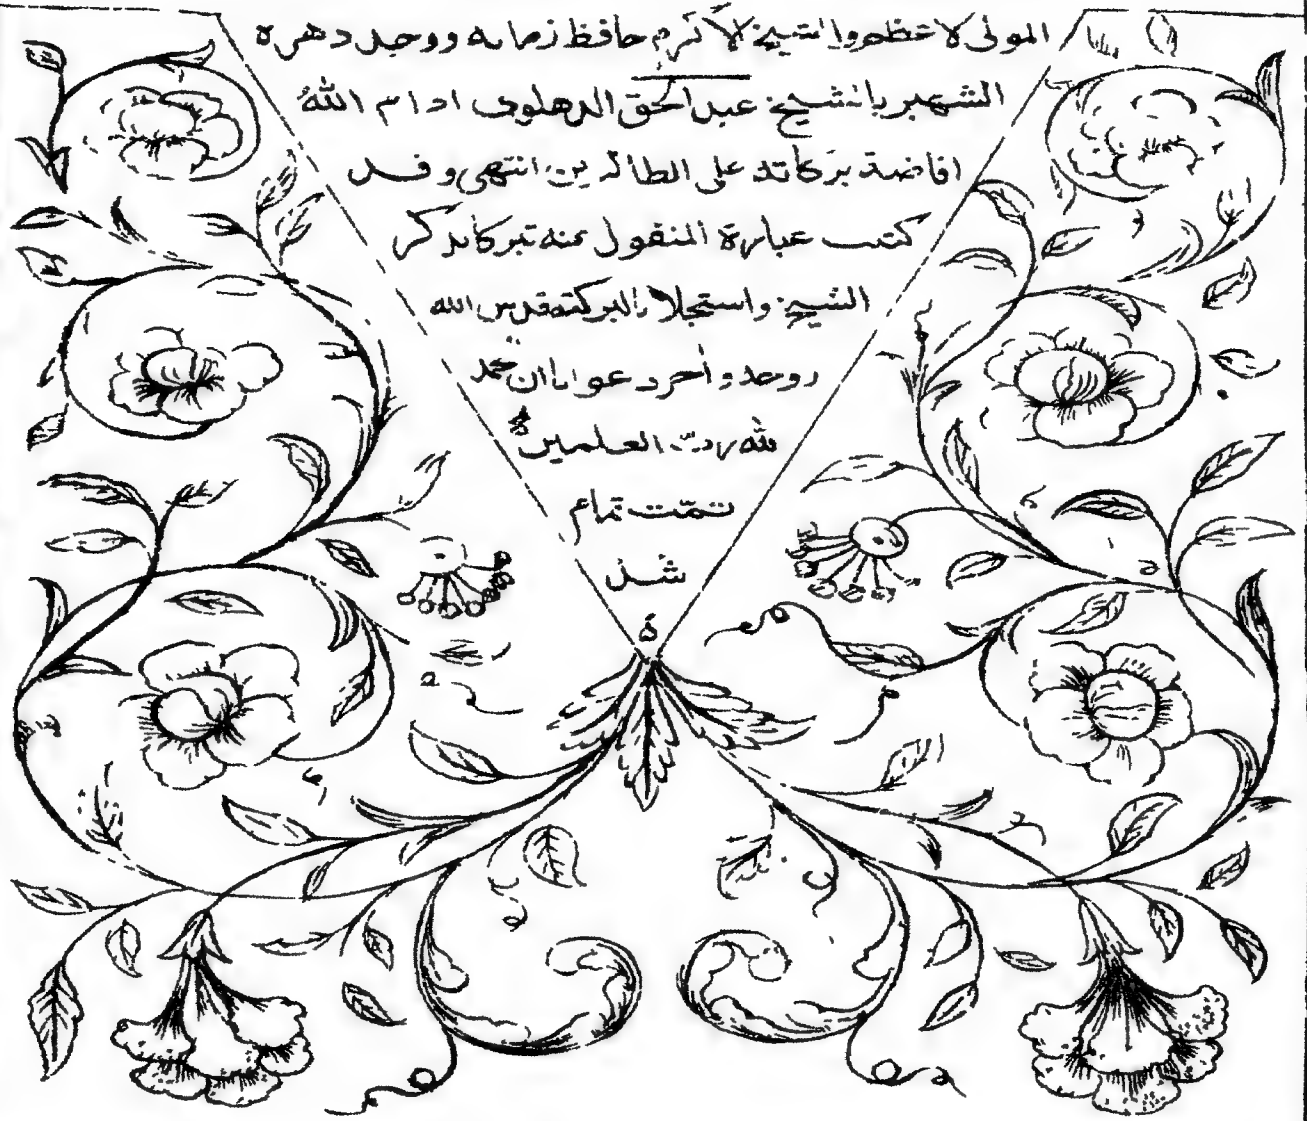 المولى الاعظم والشيخ الاكرم حافظ زمانه ووحيد دهره
الشهير بالشيخ عبد الحق الدهلوى ادام الله
افاضة بركاته على الطالبين انتهى وقد
كتب عبارة المنقول عنه تبركا بذكر
الشيخ واستجلابا لبركته قدس الله
روحه وأخر دعوانا ان الحمد
لله رب العلمين
تمت تمام
شد
ه